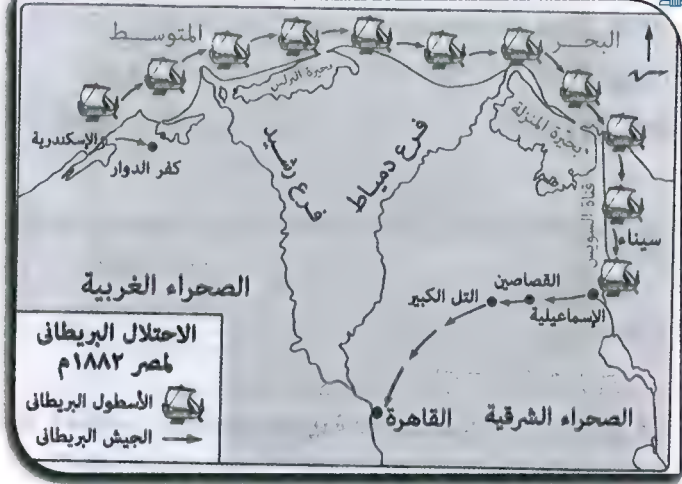 البحر المتوسط
بحيرة البرلس
بحيرة المنزلة
الإسكندرية
كفر الدوار
فرع رشيد
فرع دمياط
قناة السويس
سيناء
الصحراء الغربية
القصاصين
التل الكبير
الإسماعيلية
القاهرة
الصحراء الشرقية
الاحتلال البريطانى
لمصر ١٨٨٢م
الأسطول البريطانى
الجيش البريطانى